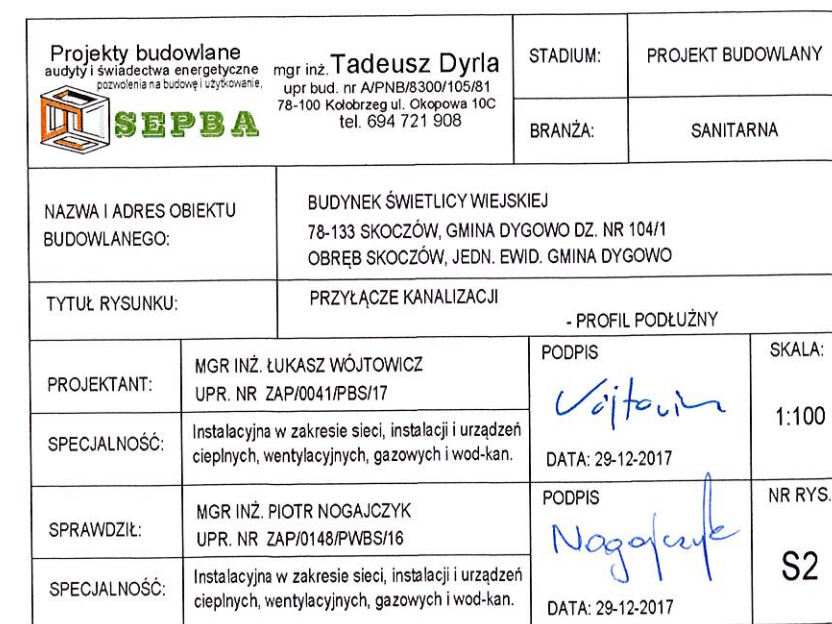 Projekty budowlane
audyty i świadectwa energetyczne
pozwolenia na budowę i użytkowanie,
SEPBA
mgr inż. Tadeusz Dyrla
upr bud. nr A/PNB/8300/105/81
78-100 Kołobrzeg ul. Okopowa 10C
tel. 694 721 908
STADIUM:
PROJEKT BUDOWLANY
BRANŻA:
SANITARNA
NAZWA I ADRES OBIEKTU
BUDOWLANEGO:
BUDYNEK ŚWIETLICY WIEJSKIEJ
78-133 SKOCZÓW, GMINA DYGOWO DZ. NR 104/1
OBRĘB SKOCZÓW, JEDN. EWID. GMINA DYGOWO
TYTUŁ RYSUNKU:
PRZYŁĄCZE KANALIZACJI
- PROFIL PODŁUŻNY
PROJEKTANT:
MGR INŻ. ŁUKASZ WÓJTOWICZ
UPR. NR ZAP/0041/PBS/17
PODPIS
Wójtowicz
DATA: 29-12-2017
SKALA:
1:100
SPECJALNOŚĆ:
Instalacyjna w zakresie sieci, instalacji i urządzeń
cieplnych, wentylacyjnych, gazowych i wod-kan.
SPRAWDZIŁ:
MGR INŻ. PIOTR NOGAJCZYK
UPR. NR ZAP/0148/PWBS/16
PODPIS
Nogajczyk
DATA: 29-12-2017
NR RYS.
S2
SPECJALNOŚĆ:
Instalacyjna w zakresie sieci, instalacji i urządzeń
cieplnych, wentylacyjnych, gazowych i wod-kan.